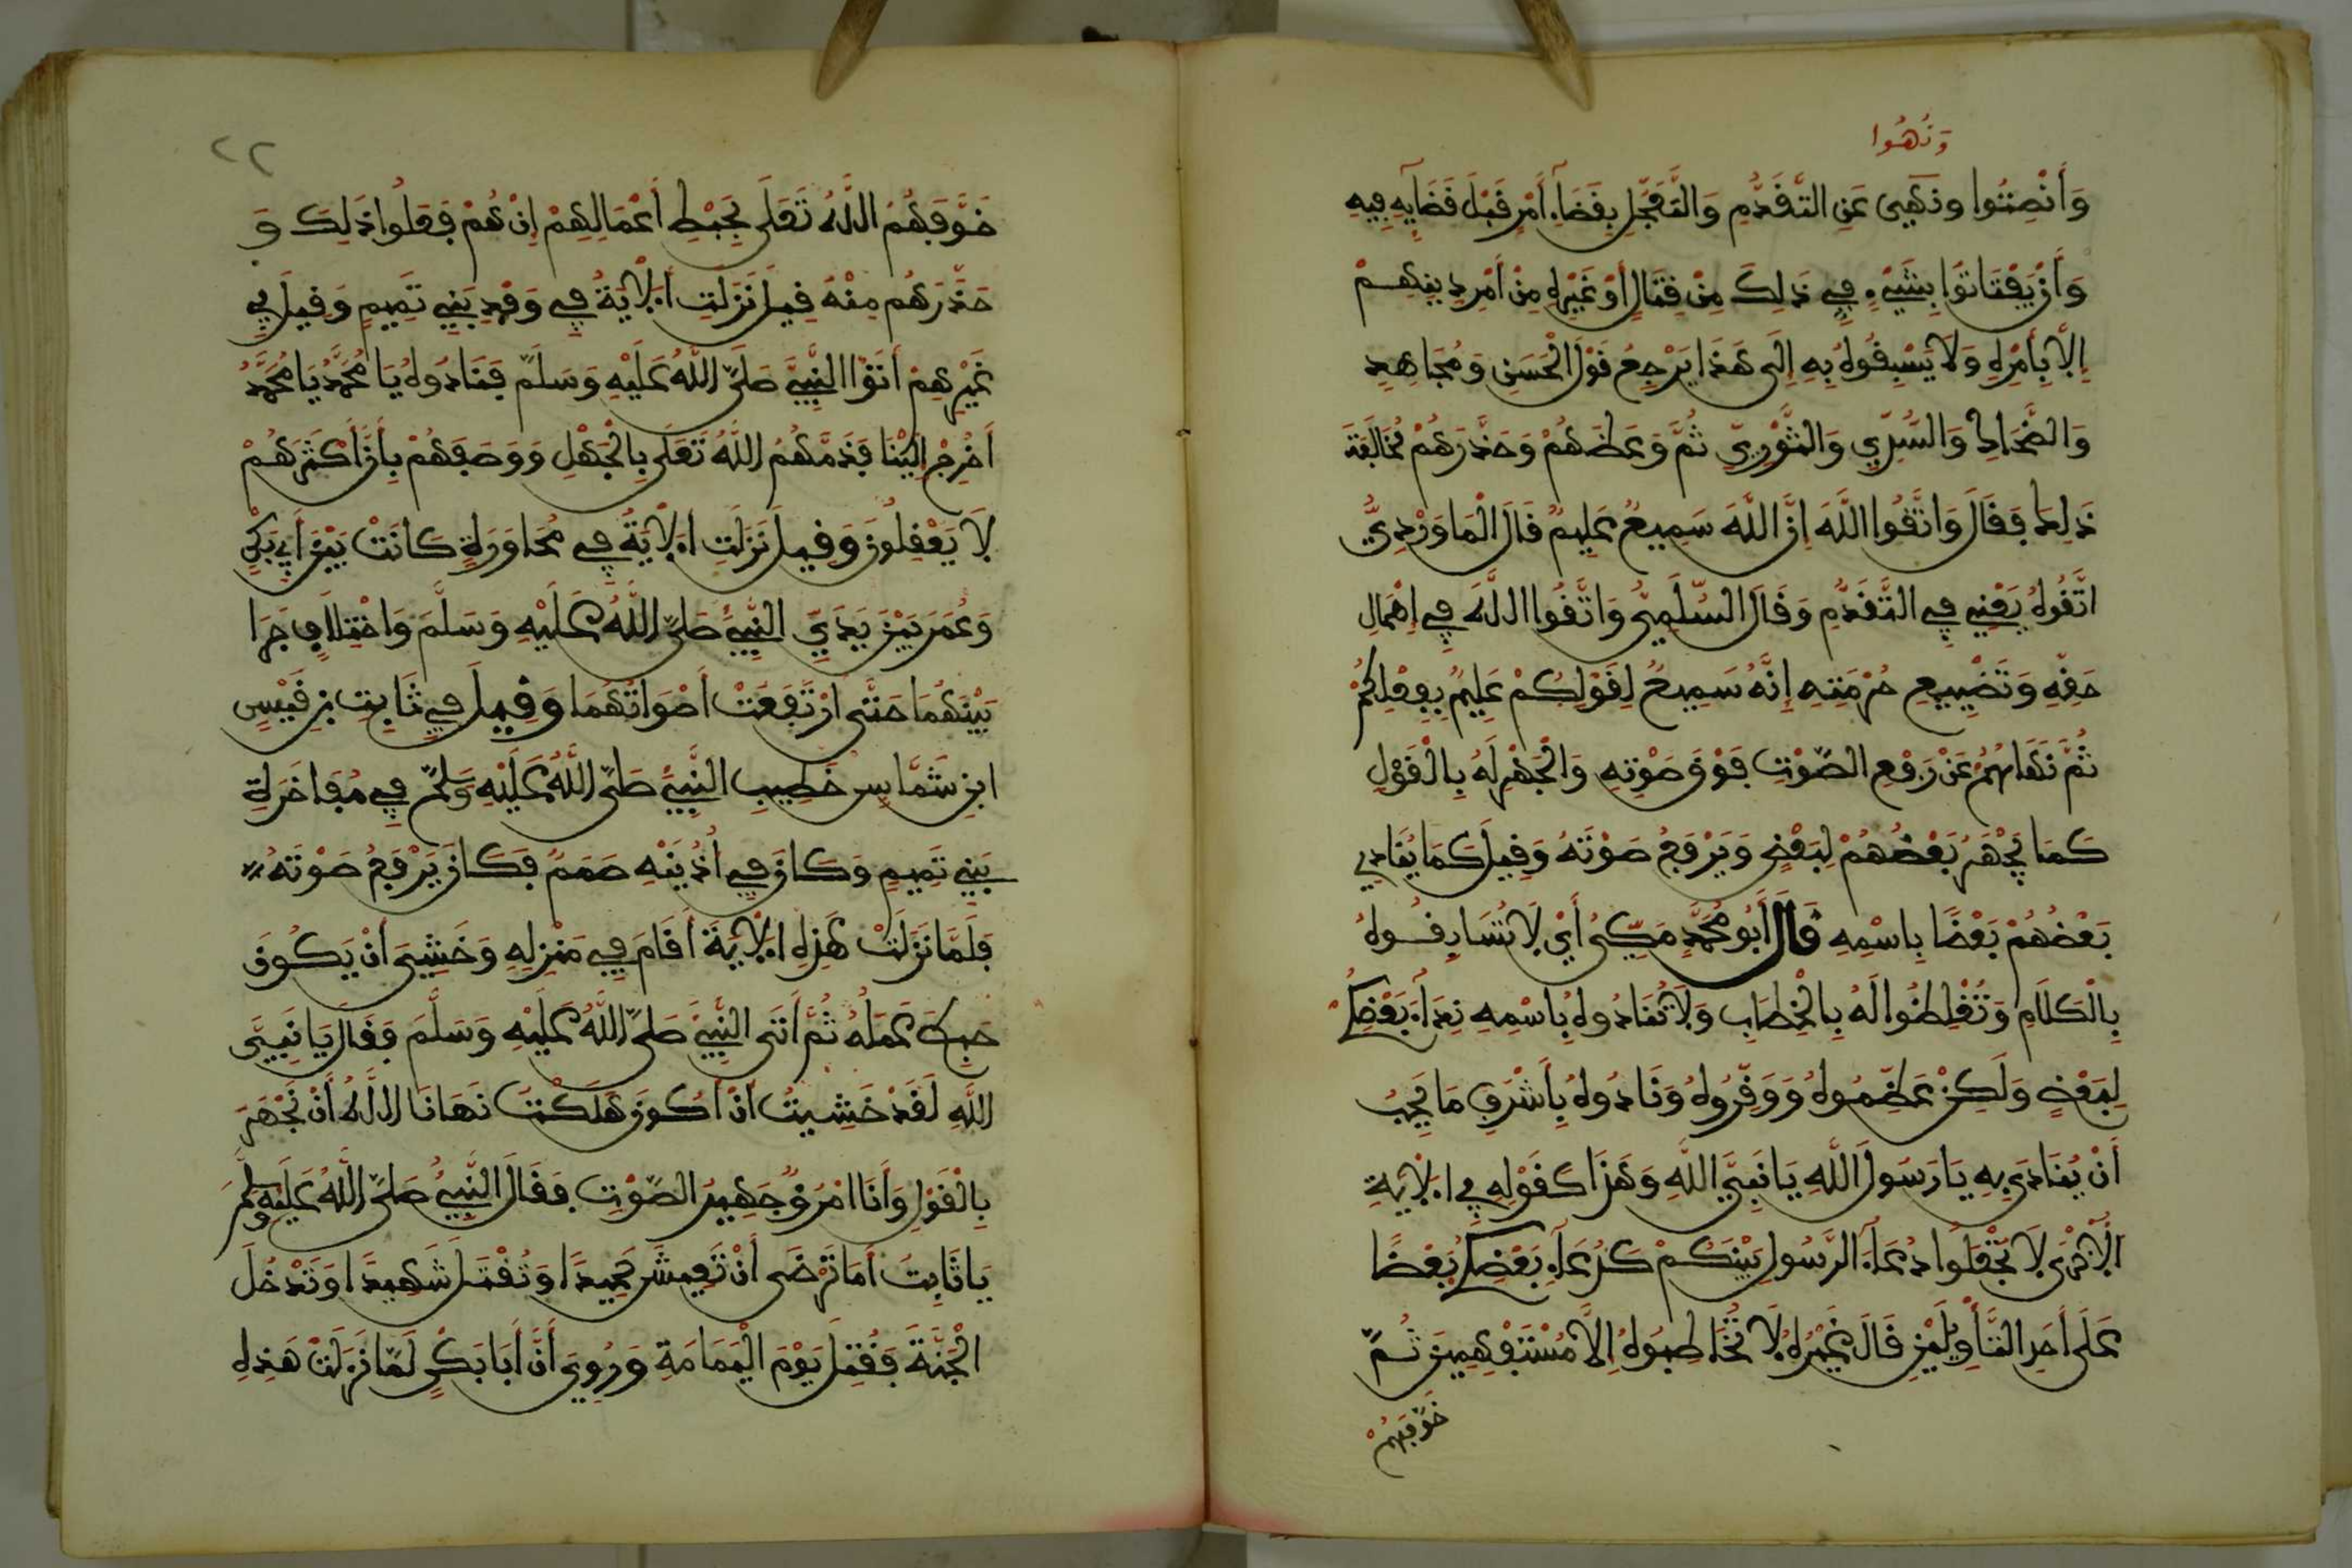 وَنُهُوا
وَأَنْصِتُوا ونَهَى عَنِ التَّقَدُّمِ وَالتَّعَجُّلِ بِقَضَآءِ أَمْرٍ قَبْلَ قَضَآيِهِ فِيهِ
وَأَنْ يَفْتَاتُوا بِشَيْءٍ فِي ذَلِكَ مِنْ قِتَالٍ أَوْ غَيْرِهِ مِنْ أَمْرِ دِينِهِمْ
إِلَّا بِأَمْرِهِ وَلَا يَسْبِقُوهُ بِهِ إِلَى هَذَا يَرْجِعُ قَوْلُ الْحَسَنِ وَمُجَاهِدٍ
وَالضَّحَّاكِ وَالسُّدِّي وَالثَّوْرِيِّ ثُمَّ وَعَظَهُمْ وَحَذَّرَهُمْ مُخَالَفَةَ
ذَلِكَ فَقَالَ وَاتَّقُوا اللَّهَ إِنَّ اللَّهَ سَمِيعٌ عَلِيمٌ قَالَ الْمَاوَرْدِيُّ
اتَّقُوهُ يَعْنِي فِي التَّقَدُّمِ وَقَالَ السُّلَمِيُّ وَاتَّقُوا اللَّهَ فِي إِهْمَالِ
حَقِّهِ وَتَضْيِيعِ حُرْمَتِهِ إِنَّهُ سَمِيعٌ لِقَوْلِكُمْ عَلِيمٌ بِفِعْلِكُمْ
ثُمَّ نَهَاهُمْ عَنْ رَفْعِ الصَّوْتِ فَوْقَ صَوْتِهِ وَالْجَهْرِ لَهُ بِالْقَوْلِ
كَمَا يَجْهَرُ بَعْضُهُمْ لِبَعْضٍ وَيَرْفَعُ صَوْتَهُ وَقِيلَ كَمَا يُنَادِي
بَعْضُهُمْ بَعْضًا بِاسْمِهِ قَالَ أَبُو مُحَمَّدٍ مَكِّيٌّ أَيْ لَا تُسَابِقُوهُ
بِالْكَلَامِ وَتُغْلِظُوا لَهُ بِالْخِطَابِ وَلَا تُنَادُوهُ بِاسْمِهِ نِدَآءَ بَعْضِكُمْ
لِبَعْضٍ وَلَكِنْ عَظِّمُوهُ وَوَقِّرُوهُ وَنَادُوهُ بِأَشْرَفِ مَا يُحِبُّ
أَنْ يُنَادَى بِهِ يَا رَسُولَ اللَّهِ يَا نَبِيَّ اللَّهِ وَهَذَا كَقَوْلِهِ فِي الْآيَةِ
الْأُخْرَى لَا تَجْعَلُوا دُعَآءَ الرَّسُولِ بَيْنَكُمْ كَدُعَآءِ بَعْضِكُمْ بَعْضًا
عَلَى أَحَدِ التَّأْوِيلَيْنِ قَالَ غَيْرُهُ لَا تُخَاطِبُوهُ إِلَّا مُسْتَفْهِمِينَ ثُمَّ
خَوَّفَهُمْ
٢٢
خَوَّفَهُمُ اللَّهُ تَعَلَى بِحَبْطِ أَعْمَالِهِمْ إِنْ هُمْ فَعَلُوا ذَلِكَ وَ
حَذَّرَهُمْ مِنْهُ قِيلَ نَزَلَتِ الْآيَةُ فِي وَفْدِ بَنِي تَمِيمٍ وَقِيلَ فِي
غَيْرِهِمْ أَتَوُا النَّبِيَّ صَلَّى اللَّهُ عَلَيْهِ وَسَلَّمَ فَنَادَوْهُ يَا مُحَمَّدُ يَا مُحَمَّدُ
أُخْرُجْ إِلَيْنَا فَذَمَّهُمُ اللَّهُ تَعَلَى بِالْجَهْلِ وَوَصَفَهُمْ بِأَنَّ أَكْثَرَهُمْ
لَا يَعْقِلُونَ وَقِيلَ نَزَلَتِ الْآيَةُ فِي مُحَاوَرَةٍ كَانَتْ بَيْنَ أَبِي بَكْرٍ
وَعُمَرَ بَيْنَ يَدَيِ النَّبِيِّ صَلَّى اللَّهُ عَلَيْهِ وَسَلَّمَ وَاخْتِلَافٍ جَرَا
بَيْنَهُمَا حَتَّى ارْتَفَعَتْ أَصْوَاتُهُمَا وَقِيلَ فِي ثَابِتِ بْنِ قَيْسِ
ابْنِ شَمَّاسٍ خَطِيبِ النَّبِيِّ صَلَّى اللَّهُ عَلَيْهِ وَسَلَّمَ فِي مُفَاخَرَةِ
بَنِي تَمِيمٍ وَكَانَ فِي أُذُنَيْهِ صَمَمٌ فَكَانَ يَرْفَعُ صَوْتَهُ
فَلَمَّا نَزَلَتْ هَذِهِ الْآيَةُ أَقَامَ فِي مَنْزِلِهِ وَخَشِيَ أَنْ يَكُونَ
حَبِطَ عَمَلُهُ ثُمَّ أَتَى النَّبِيَّ صَلَّى اللَّهُ عَلَيْهِ وَسَلَّمَ فَقَالَ يَا نَبِيَّ
اللَّهِ لَقَدْ خَشِيتُ أَنْ أَكُونَ هَلَكْتُ نَهَانَا اللَّهُ أَنْ نَجْهَرَ
بِالْقَوْلِ وَأَنَا امْرُؤٌ جَهِيرُ الصَّوْتِ فَقَالَ النَّبِيُّ صَلَّى اللَّهُ عَلَيْهِ وَسَلَّمَ
يَا ثَابِتُ أَمَا تَرْضَى أَنْ تَعِيشَ حَمِيدًا وَتُقْتَلَ شَهِيدًا وَتَدْخُلَ
الْجَنَّةَ فَقُتِلَ يَوْمَ الْيَمَامَةِ وَرُوِيَ أَنَّ أَبَا بَكْرٍ لَمَّا نَزَلَتْ هَذِهِ